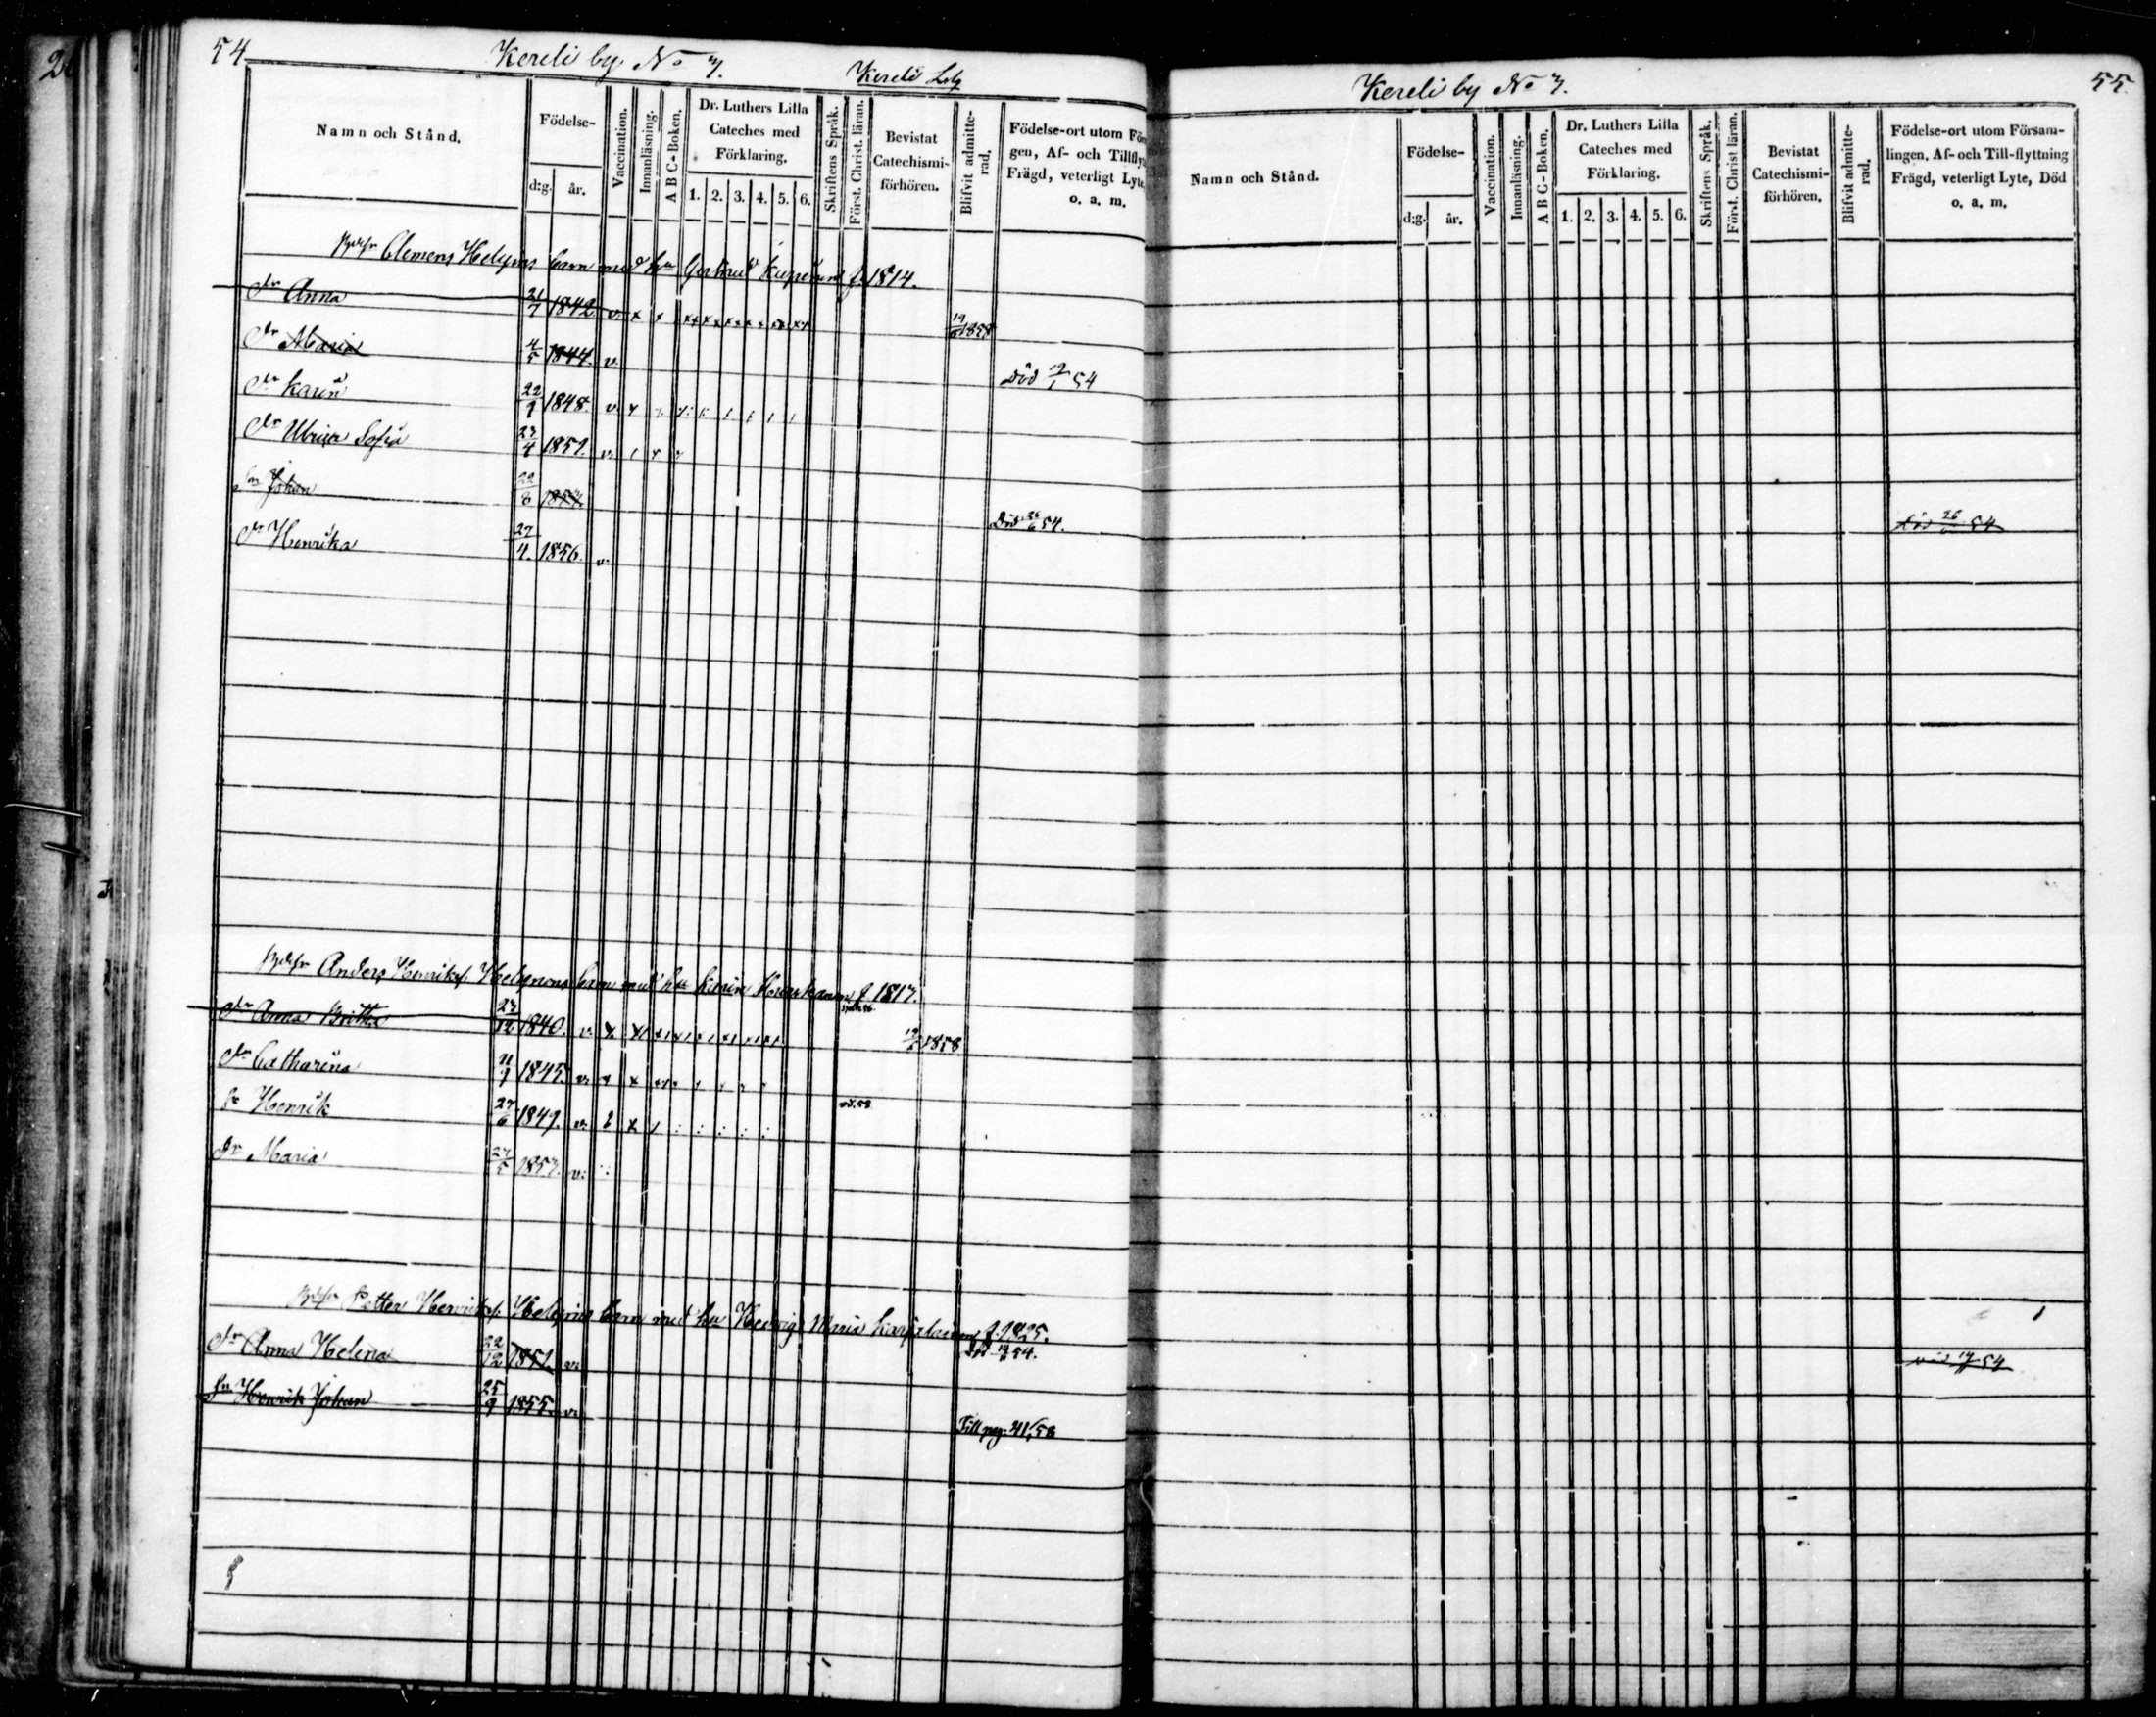 54 Kereli by No 7. Kereli
Namn och Stånd.
Födelse-
d:g. år.
Vaccination.
Innanläsning.
A B C-Boken.
Dr. Luthers Lilla
Cateches med
Förklaring.
1. 2. 3. 4. 5. 6.
Skriftens Språk.
Först. Christ. läran.
Bevistat
Catechismi-
förhören.
Blifvit admitte-
rad.
Födelse-ort utom För
gen, Af- och Tillfly
Frägd, veterligt Lyte
o. a. m.
Clemens barn med Gertrud f. 1814.
dr Anna 21/7 1842 v. 1858
dr Maria 4/5 1844. v. Död 12/1 54
dr Karin 22/9 1848. v.
dr Ulrica Sofia 23/4 1851. v.
sn Johan 22/8 1853. Död 26/6 54.
dr Henrika 27/4. 1856. v.
Anders Henriks. barn med Karin f. 1817.
dr Anna Britha 23/12 1840. v. 1858
dr Catharina 11/9 1845. v.
sn Henrik 27/6 1849. v.
dr Maria 27/5 1853. v.
Petter Henriks. barn med Hedvig Maria f. 1825.
dr Anna Helena 22/12 1851. v. 54.
sn Henrik Johan 25/9 1855. v. Till pag. 41, 58
Kereli by No 7. 55.
Namn och Stånd.
Födelse-
d:g. år.
Vaccination.
Innanläsning.
A B C-Boken.
Dr. Luthers Lilla
Cateches med
Förklaring.
1. 2. 3. 4. 5. 6.
Skriftens Språk.
Först. Christ läran.
Bevistat
Catechismi-
förhören.
Blifvit admitte-
rad.
Födelse-ort utom Försam-
lingen, Af- och Till-flyttning
Frägd, veterligt Lyte, Död
o. a. m.
Död 26/6 54
54